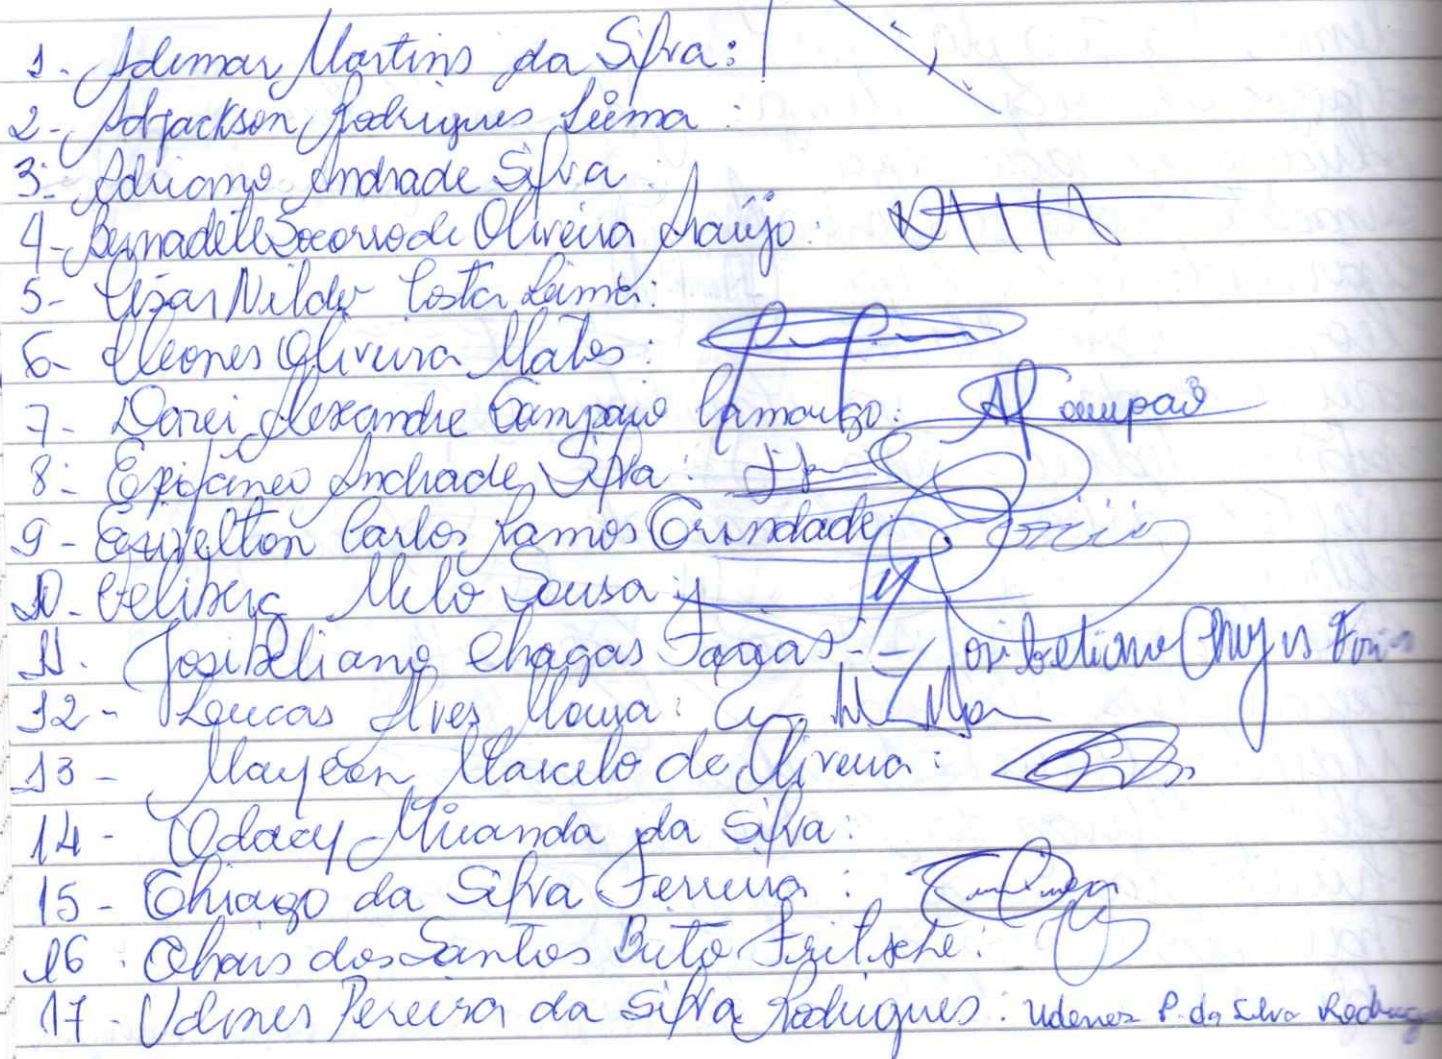 1- Ademar Martins da Silva:
2- Adjackson Rodrigues Lima:
3- Adriano Andrade Silva:
4- Bernadete Socorro de Oliveira Araújo:
5- César Nildo Costa Lima:
6- Cleones Oliveira Matos:
7- Darei Alexandre Sampaio Camargo: Sampaio
8- Epifaneo Andrade Silva:
9- Carlos Ramos Trindade
10- Melo Sousa:
11- Josibeliano Chagas Farias - - Josibeliano Chagas Farias
12- Luucas Alves Moura:
13- Maycon Marcelo de Oliveira:
14- Odacy Miranda da Silva:
15- Thiago da Silva Ferreira:
16- Thais dos Santos Brito Fritsche:
17- Udenes Pereira da Silva Rodrigues: Udenes P. da Silva Rodrigu